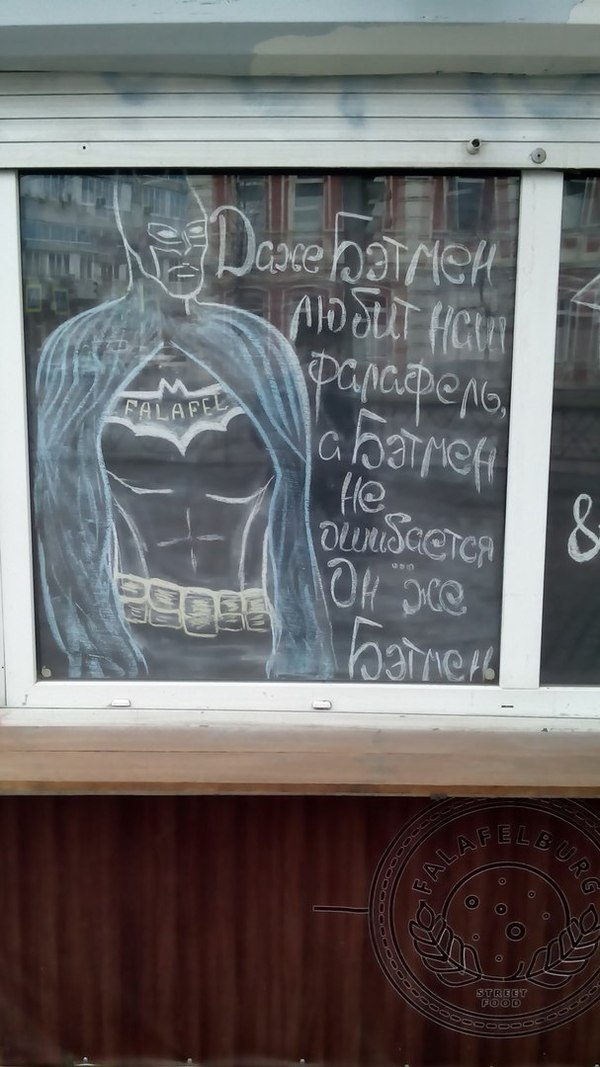 Даже Бэтмен
любит наш
фалафель,
а Бэтмен
не
ошибается
...
Он же
Бэтмен
FALAFEL
&
FALAFELBURG
STREET
FOOD